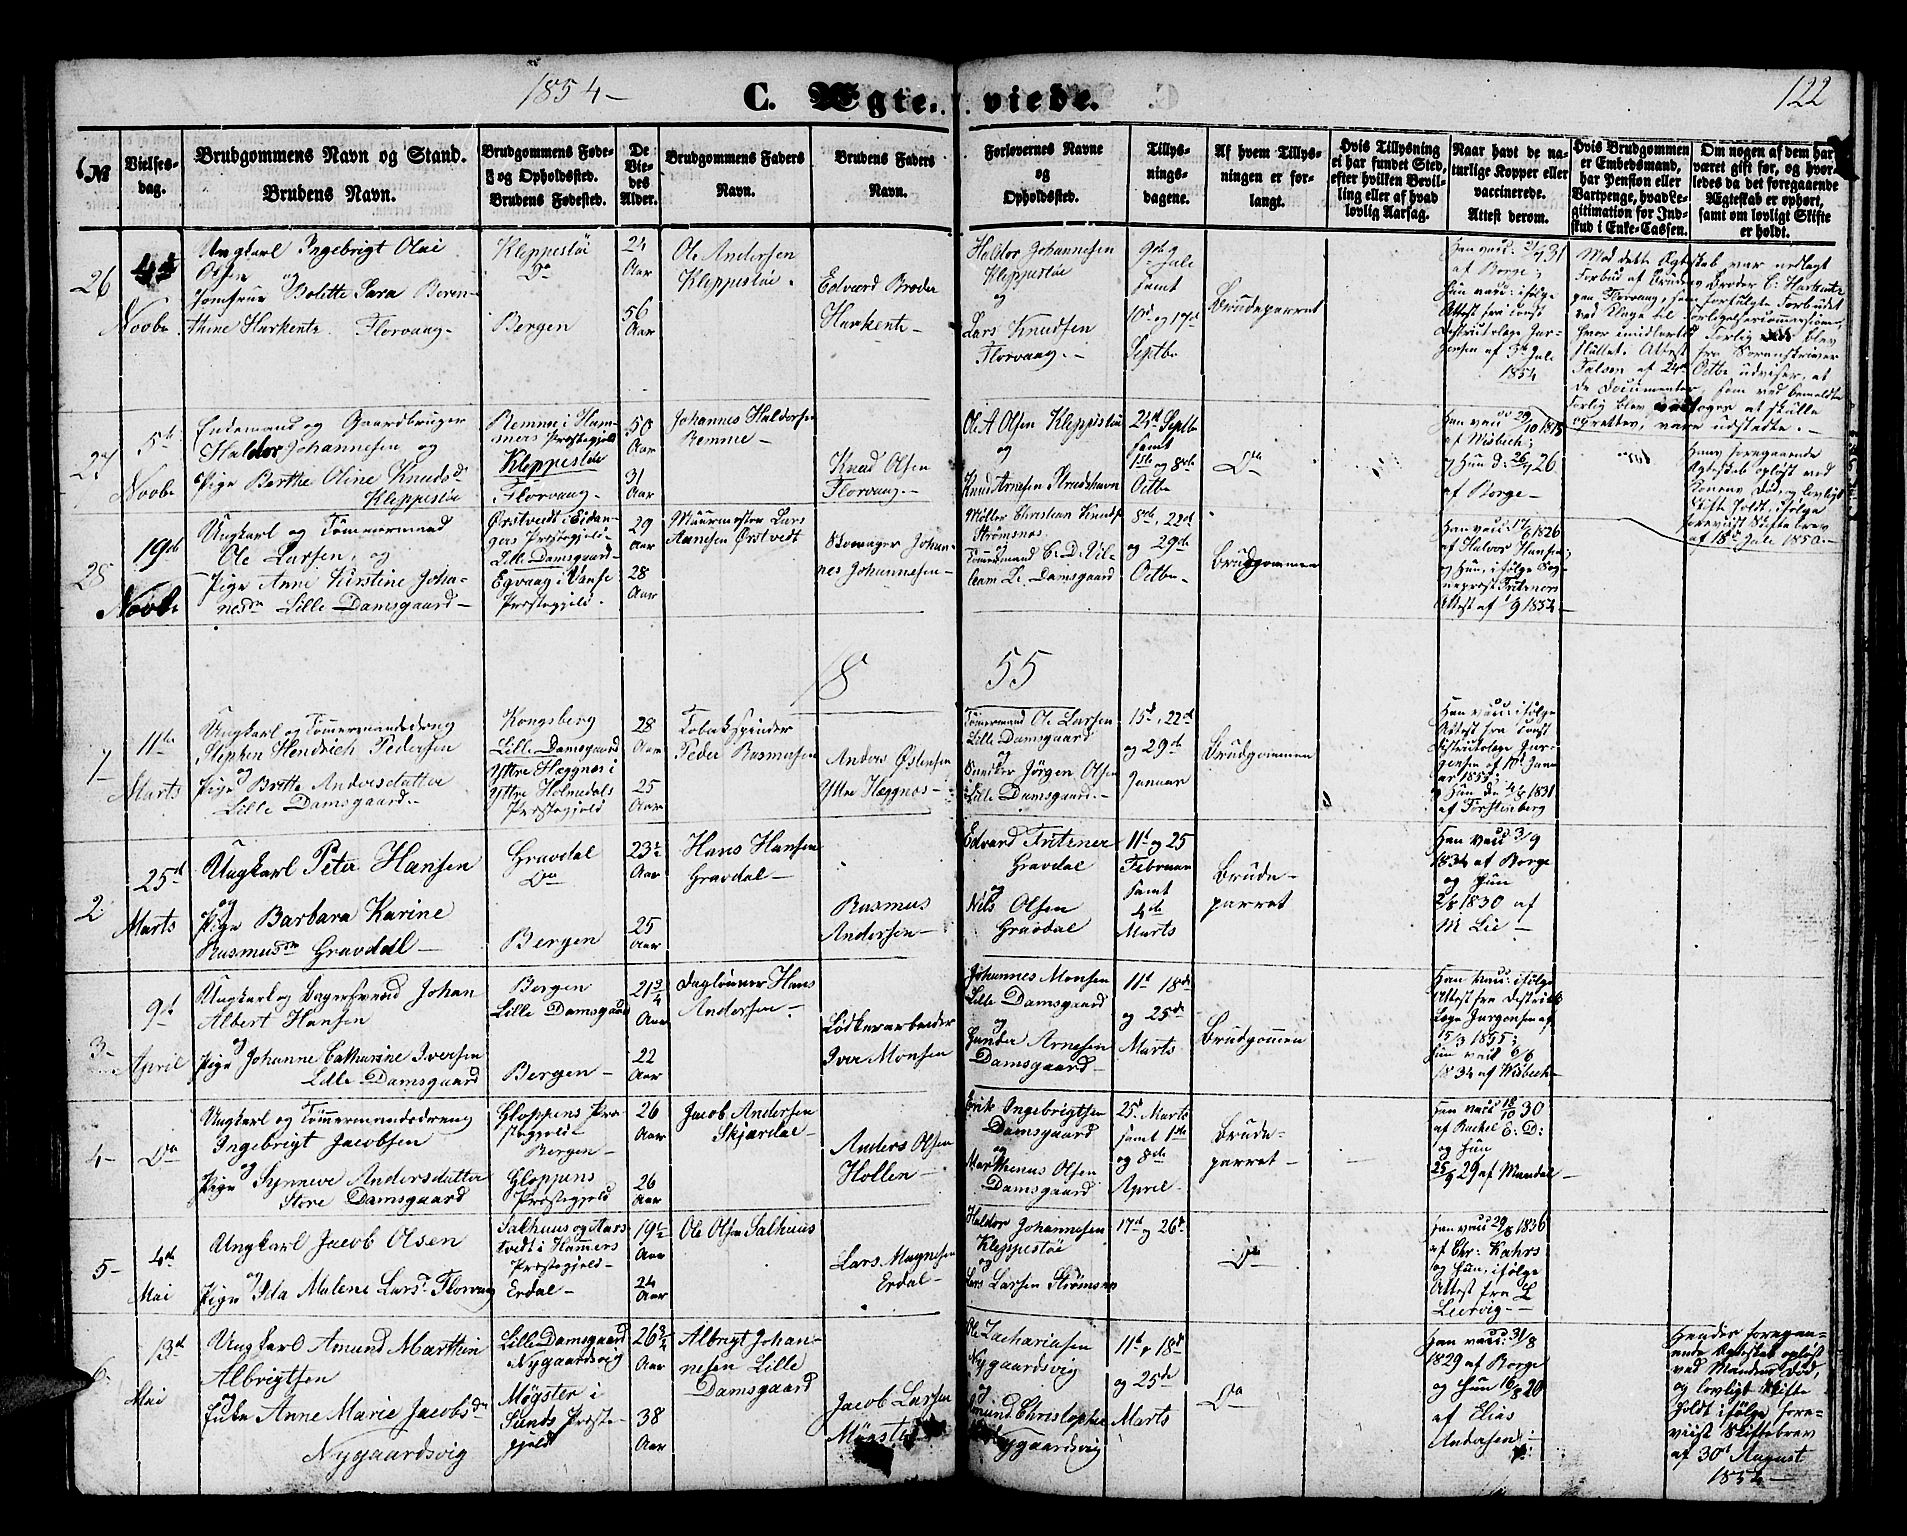 1854-
C. Ægte-viede.
122
No
Vielses-
dag.
Brudgommens Navn og Stand.
Brudens Navn.
Brudgommens Føde-
og Opholdssted.
Brudens Fødested.
De
Vie-
des
Alder.
Brudgommens Faders
Navn.
Brudens Faders
Navn.
Forlovernes Navne
og
Opholdssted.
Tillys-
nings-
dagene.
Af hvem Tillys-
ningen er for-
langt.
Hvis Tillysning
ei har fundet Sted,
efter hvilken Bevil-
ling eller af hvad
lovlig Aarsag.
Naar havt de na-
turlige Kopper eller
vaccinerede.
Attest derom.
Hvis Brudgommen
er Embedsmand,
har Pension eller
Vartpenge, hvad Le-
gitimation for Ind-
skud i Enke-Cassen.
Om nogen af dem har
været gift før, og hvor-
ledes da det foregaaende
Ægteskab er ophørt,
samt om lovligt Skifte
er holdt.
26
4de
Novbr
Ungkarl Ingebrigt Olai
Olsen
og
Jomfrue Bolette Sara Beren-
thine Harkentz. Florvaag-
Kleppestøe
Do
Bergen
24
Aar
56
Aar
Ole Andersen
Kleppestøe.
Edvard Broder
Harkentz-
Haldor Johannesen
Kleppestøe
og
Lars Knudsen
Florvaag.-
9de Juli
samt
10de og 17de
Septbr
Brudeparret
Han vacc: 21/7 31
af Borge;
Hun vacc: ifølge
Attest fra const
Districtslæge Jür-
gensen af 3de Juli
1854
Mod dette Ægteskab var nedlagt
Forbud af Brudens Broder E: Harkentz
paa Florvaag, som forfulgte Forbudet
ved Klage til Forligelsescommissionen,
hvor imidlertid Forlig blev
sluttet. Attest fra Sorenskriver
Falsen af 24de Octbr udviser, at
de Documenter, som ved bemeldte
Forlig blev oprettet, vare udstedte.-
27
5te
Novbr
Enkemand og Gaardbruger
Haldor Johannesen og
Pige Berthe Oline Knudsdr
Kleppestøe
Remme i Ham-
mers Præstegjeld
Kleppestøe
Florvaag-
50
Aar
31
Aar
Johannes Haldorsen
Remme-
Knud Olsen
Florvaag.-
Ole A Olsen Kleppestøe
og
Knud Arnesen Strudshavn
24de Septbr
samt
1ste og 8de
Octbr
Do
Han vacc 29/10 1815
af Wisbech;
og Hun d: 26/7 26
af Borge-
Hans foregaaende
Ægteskab opløst ved
Konens Død, og lovligt
Skifte holdt, ifølge
foreviist Skiftebrev
af 18de Juli 1850.-
28
19de
Novbr
Ungkarl og Tømmermand
Ole Larsen, og
Pige Anne Kirstine Joha-
nnesdr Lille Damsgaard-
Ørstvedt i Eidan-
gers Præstegjeld-
Lille Damsgaard-
Egvaag i Vanse
Præstegjeld.
29
Aar
28
Aar
Muurmester Lars
Aanesen Ørstvedt
Svoger Johan-
nes Johannesen-
Møller Christian Knuds
Strømsnes
og
Tømmermand C. D. Vil-
lum L. Damsgaard
8de, 22de
og 29de
Octbr-
Brudgommen
Han vacc: 17/6 1826
af Halvor Hansen;
og Hun, ifølge Sog-
nepræst Fritzners
Attest af 1/9 1854-
18 55
1-
11te
Marts
Ungkarl og Tømmermandsdreng
Stephen Hendrich Pedersen
og
Pige Brette Andersdatter
Lille Damsgaard.-
Kongsberg
Lille Damsgaard
Yttre Hæggnes i
Yttre Holmedals
Præstegjeld
28
Aar
25
Aar
Tobakspinder
Peder Rasmussen
Anders Østensen
Yttre Hæggnes-
Tømmermand Ole Larsen
Lille Damsgaard
og
Snedker Jørgen Olsen
Lille Damsgaard.-
15de, 22de
og 29de
Januar
Brudgommen
Han vacc: ifølge
Attest fra Const
Districtslæge Jür-
gensen af 10de Janu
ar 1855;
og Hun den 4/9 1831
af Førstenberg
2
25de
Marts
Ungkarl Peter Hansen
og
Pige Barbara Karine
Rasmusdr Gravdal-
Gravdal
Do
Bergen
23½
Aar
25
Aar
Hans Hansen
Gravdal-
Rasmus
Andersen-
Edvard Fritzner
Gravdal
og
Nils Olsen
Gravdal
11te og 25
Februar
samt
4de
Marts
Brude-
parret
Han vacc 3/9
1834 af Borge
og Hun
2/8 1830 af
M Lie-
3-
9de
April
Ungkarl og Bagersvend Johan
Albert Hansen
og
Pige Johanne Cathrine Iversen
Lille Damsgaard
Bergen
Lille Damsgaard
Bergen-
21¾
Aar
22
Aar
Dagleiner Hans
Andersen.
Bødkerarbeider
Iver Monsen
Johannes Monsen
Lille Damsgaard
og
Gunder Arnesen
Damsgaard-
11te 18de
og 25de
Marts
Brudgommen
Han vacc: ifølge
Attest fra Districts
Læge Jürgensen af
15/3 1855;
Hun vacc 6/6
1834 af Wisbech-
4-
Do
Ungkarl og Tømmermandsdreng
Ingebrigt Jacobsen
og
Pige Synneve Andersdatter
Store Damsgaard
Gloppens Præ-
stegjeld-
Bergen-
Gloppens
Præstegjeld
26
Aar
26
Aar
Jacob Andersen
Skjærdal-
Anders Olsen
Hollen-
Erik Ingebrigtsen
Damsgaard
og
Marthinus Olsen
Damsgaard
25de Marts
samt 1ste
og 8de
April.
Brude-
parret-
Han vacc 18/10 30
af Rachel E: D:
og Hun
25/9 29 af Mandal-
5-
4de
Mai
Ungkarl Jacob Olsen
og
Pige Ida Malene Larsdr Florvaag
Salhuus og Aars
tvedt i Hammers
Præstegjeld-
Erdal-
19½
Aar
24
Aar
Ole Olsen Salhuus
Lars Magnesen
Erdal-
Haldor Johannesen
Kleppestøe
og
Lars Larsen Strømsnes
17de og 26de
Do
Han vacc 29/8 1836
af Chr: Kahrs
og Hun, ifølge
Attest fra L
Leervig-
6-
13de
Mai
Ungkarl Amund Marthin
Albrigtsen
og
Enke Anne Marie Jacobsdr
Nygaardsvig
Lille Damsgaard
Nygaardsvig
Møgster i
Sunds Præste-
gjeld
26¾
Aar
38
Aar
Albrigt Johan-
nesen Lille
Damsgaard
Jacob Larsen
Møgster
Ole Zachariasen
Nygaardsvig
og
Amund Christophe
Nygaardsvig
11te, 18de
og 25de
Marts
Do
Han vacc: 31/8
1829 af Borge
og Hun 16/8 20
af Elias
Andersen:-
Hendes foregaa-
ende Ægteskab opløst
ved Mandens Død,
og lovligt Skifte
holdt ifølge fore-
viist Skiftebrev
af 30te August
1854-